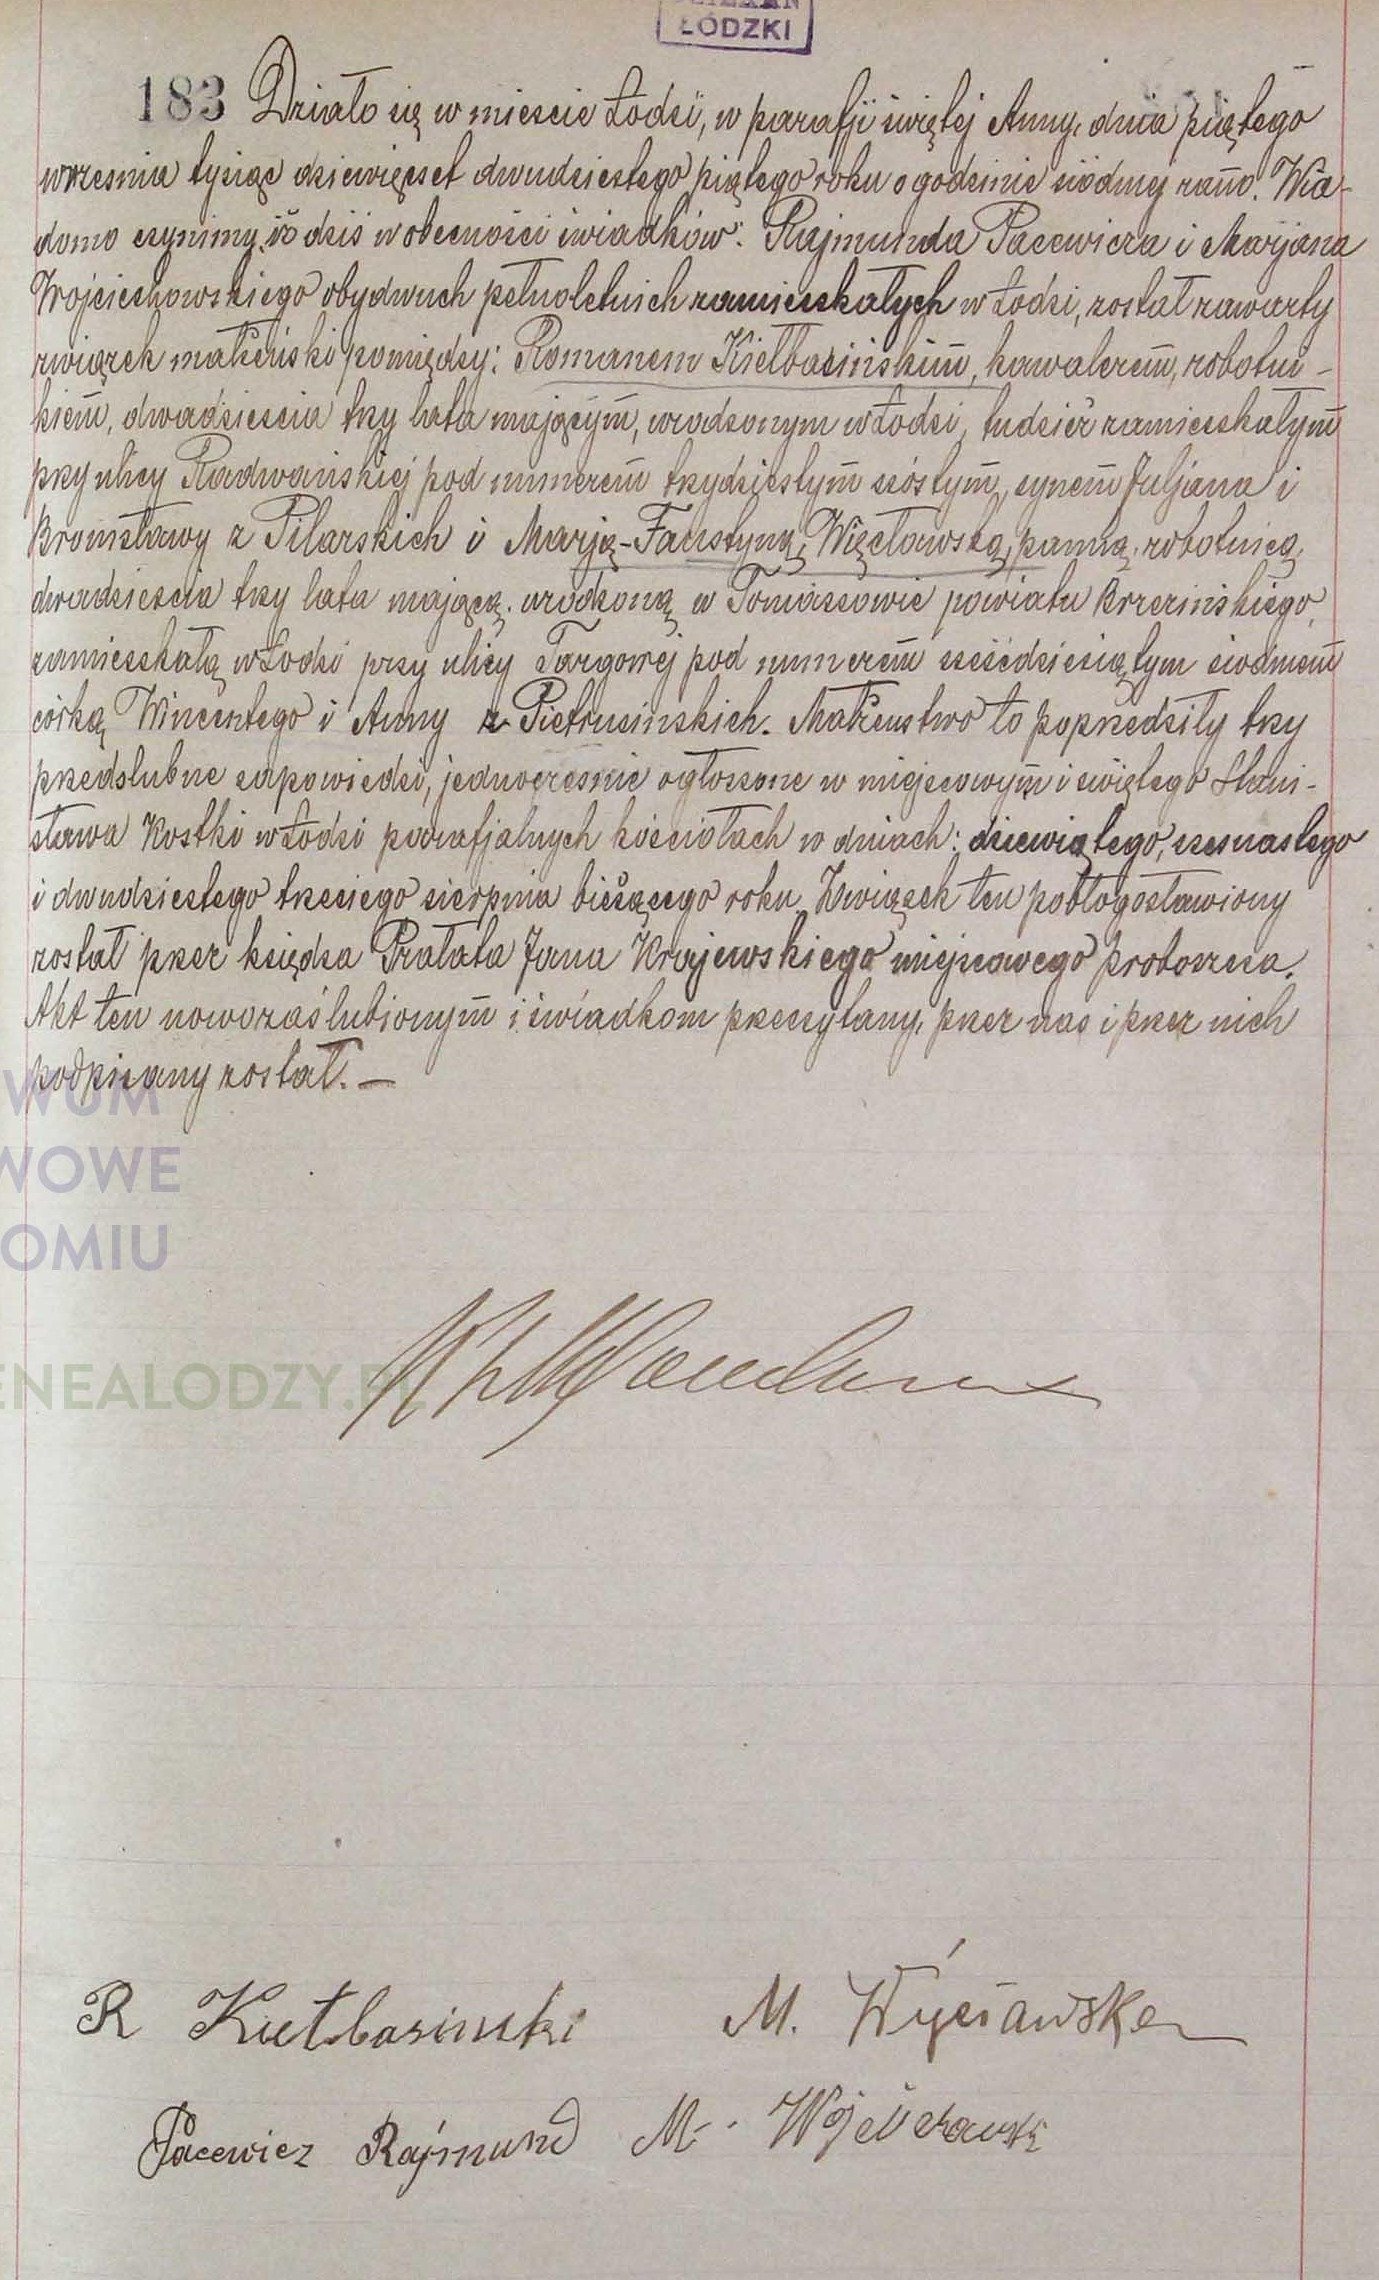 ŁÓDZKI
183 Działo się w mieście Łodzi, w parafji świętej Anny, dnia piątego
września tysiąc dziewięćset dwudziestego piątego roku o godzinie siódmej rano. Wia-
domo czynimy, iż dziś w obecności świadków: Rajmunda Pacewicza i Marjana
Wojciechowskiego obydwuch pełnoletnich zamieszkałych w Łodzi, został zawarty
związek małżeński pomiędzy: Romanem Kiełbasińskim, kawalerem, robotni-
kiem, dwadzieścia trzy lata mającym, urodzonym w Łodzi, tudzież zamieszkałym
przy ulicy Radwańskiej pod numerem trzydziestym szóstym, synem Juljana i
Bronisławy z Pilarskich i Marją-Faustyną Więcławską, panną, robotnicą,
dwadzieścia trzy lata mającą, urodzoną w Tomaszowie powiatu Brzezińskiego,
zamieszkałą w Łodzi przy ulicy Targowej pod numerem sześćdziesiątym siódmem
córką Wincentego i Anny z Pietrusińskich. Małżeństwo to poprzedziły trzy
przedślubne zapowiedzi, jednocześnie ogłoszone w miejscowym i świętego Stani-
sława Kostki w Łodzi parafjalnych kościołach w dniach: dziewiątego, szesnastego
i dwudziestego trzeciego sierpnia bieżącego roku. Związek ten pobłogosławiony
został przez księdza Prałata Jana Krajewskiego miejscowego proboszcza.
Akt ten nowozaślubionym i świadkom przeczytany, przez nas i przez nich
podpisany został. —
WUM
WOWE
OMIU
ENEALODZY.PL
R Kiełbasinski M. Więcławska
Pacewicz Rajmund M. Wojciechowski